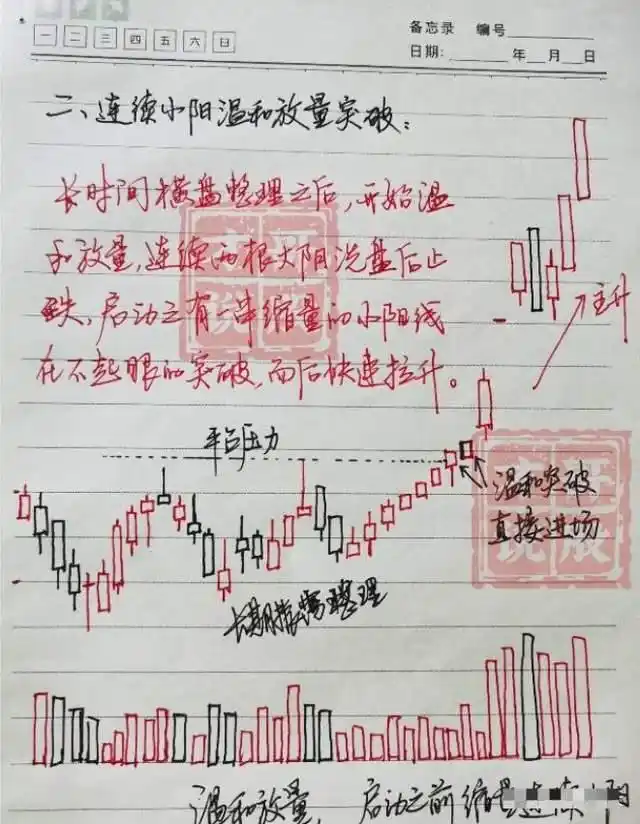 备忘录 编号
一 二 三 四 五 六 日
日期: 年 月 日
二、连续小阳温和放量突破:
长时间横盘整理之后,开始温
和放量,连续两根大阳洗盘后止
跌,启动之有一串缩量的小阳线
在不起眼的突破,而后快速拉升。
主升
平台压力
温和突破
直接进场
长期横盘整理
温和放量,启动之前缩量连续小阳